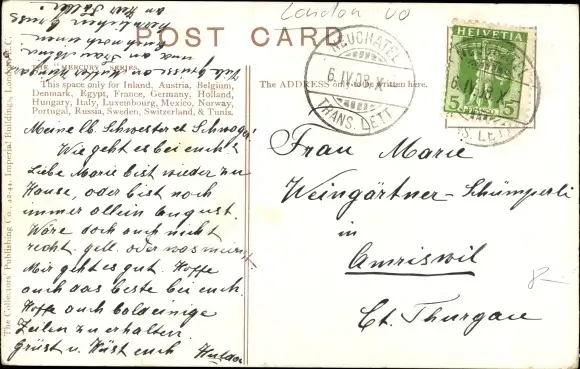 London VO
POST CARD
THE "MERCURY" SERIES.
This space only for Inland, Austria, Belgium,
Denmark, Egypt, France, Germany, Holland,
Hungary, Italy, Luxembourg, Mexico, Norway,
Portugal, Russia, Sweden, Switzerland, & Tunis.
The ADDRESS only to be written here.
The Collectors' Publishing Co., 42-44, Imperial Buildings, London, E.C.
NEUCHATEL
6.IV.08.X
TRANS. LETT
HELVETIA
5 5
Meine lb. Schwester et Schwager!
Wie geht es bei euch?
Liebe Marie bist wieder zu
Hause, oder bist noch
immer allein August.
Wäre doch auch nicht
recht. gell. oder was
Mir geht es gut. Hoffe
auch das beste bei euch.
Hoffe auch bald einige
Zeilen zu erhalten
Grüst u. Küst euch Hulda
an Herr
herzlichen Gruss
auch noch einen
und an Frau
Frau Marie
Weingärtner-Schümperli
in
Amriswil
Ct. Thurgau